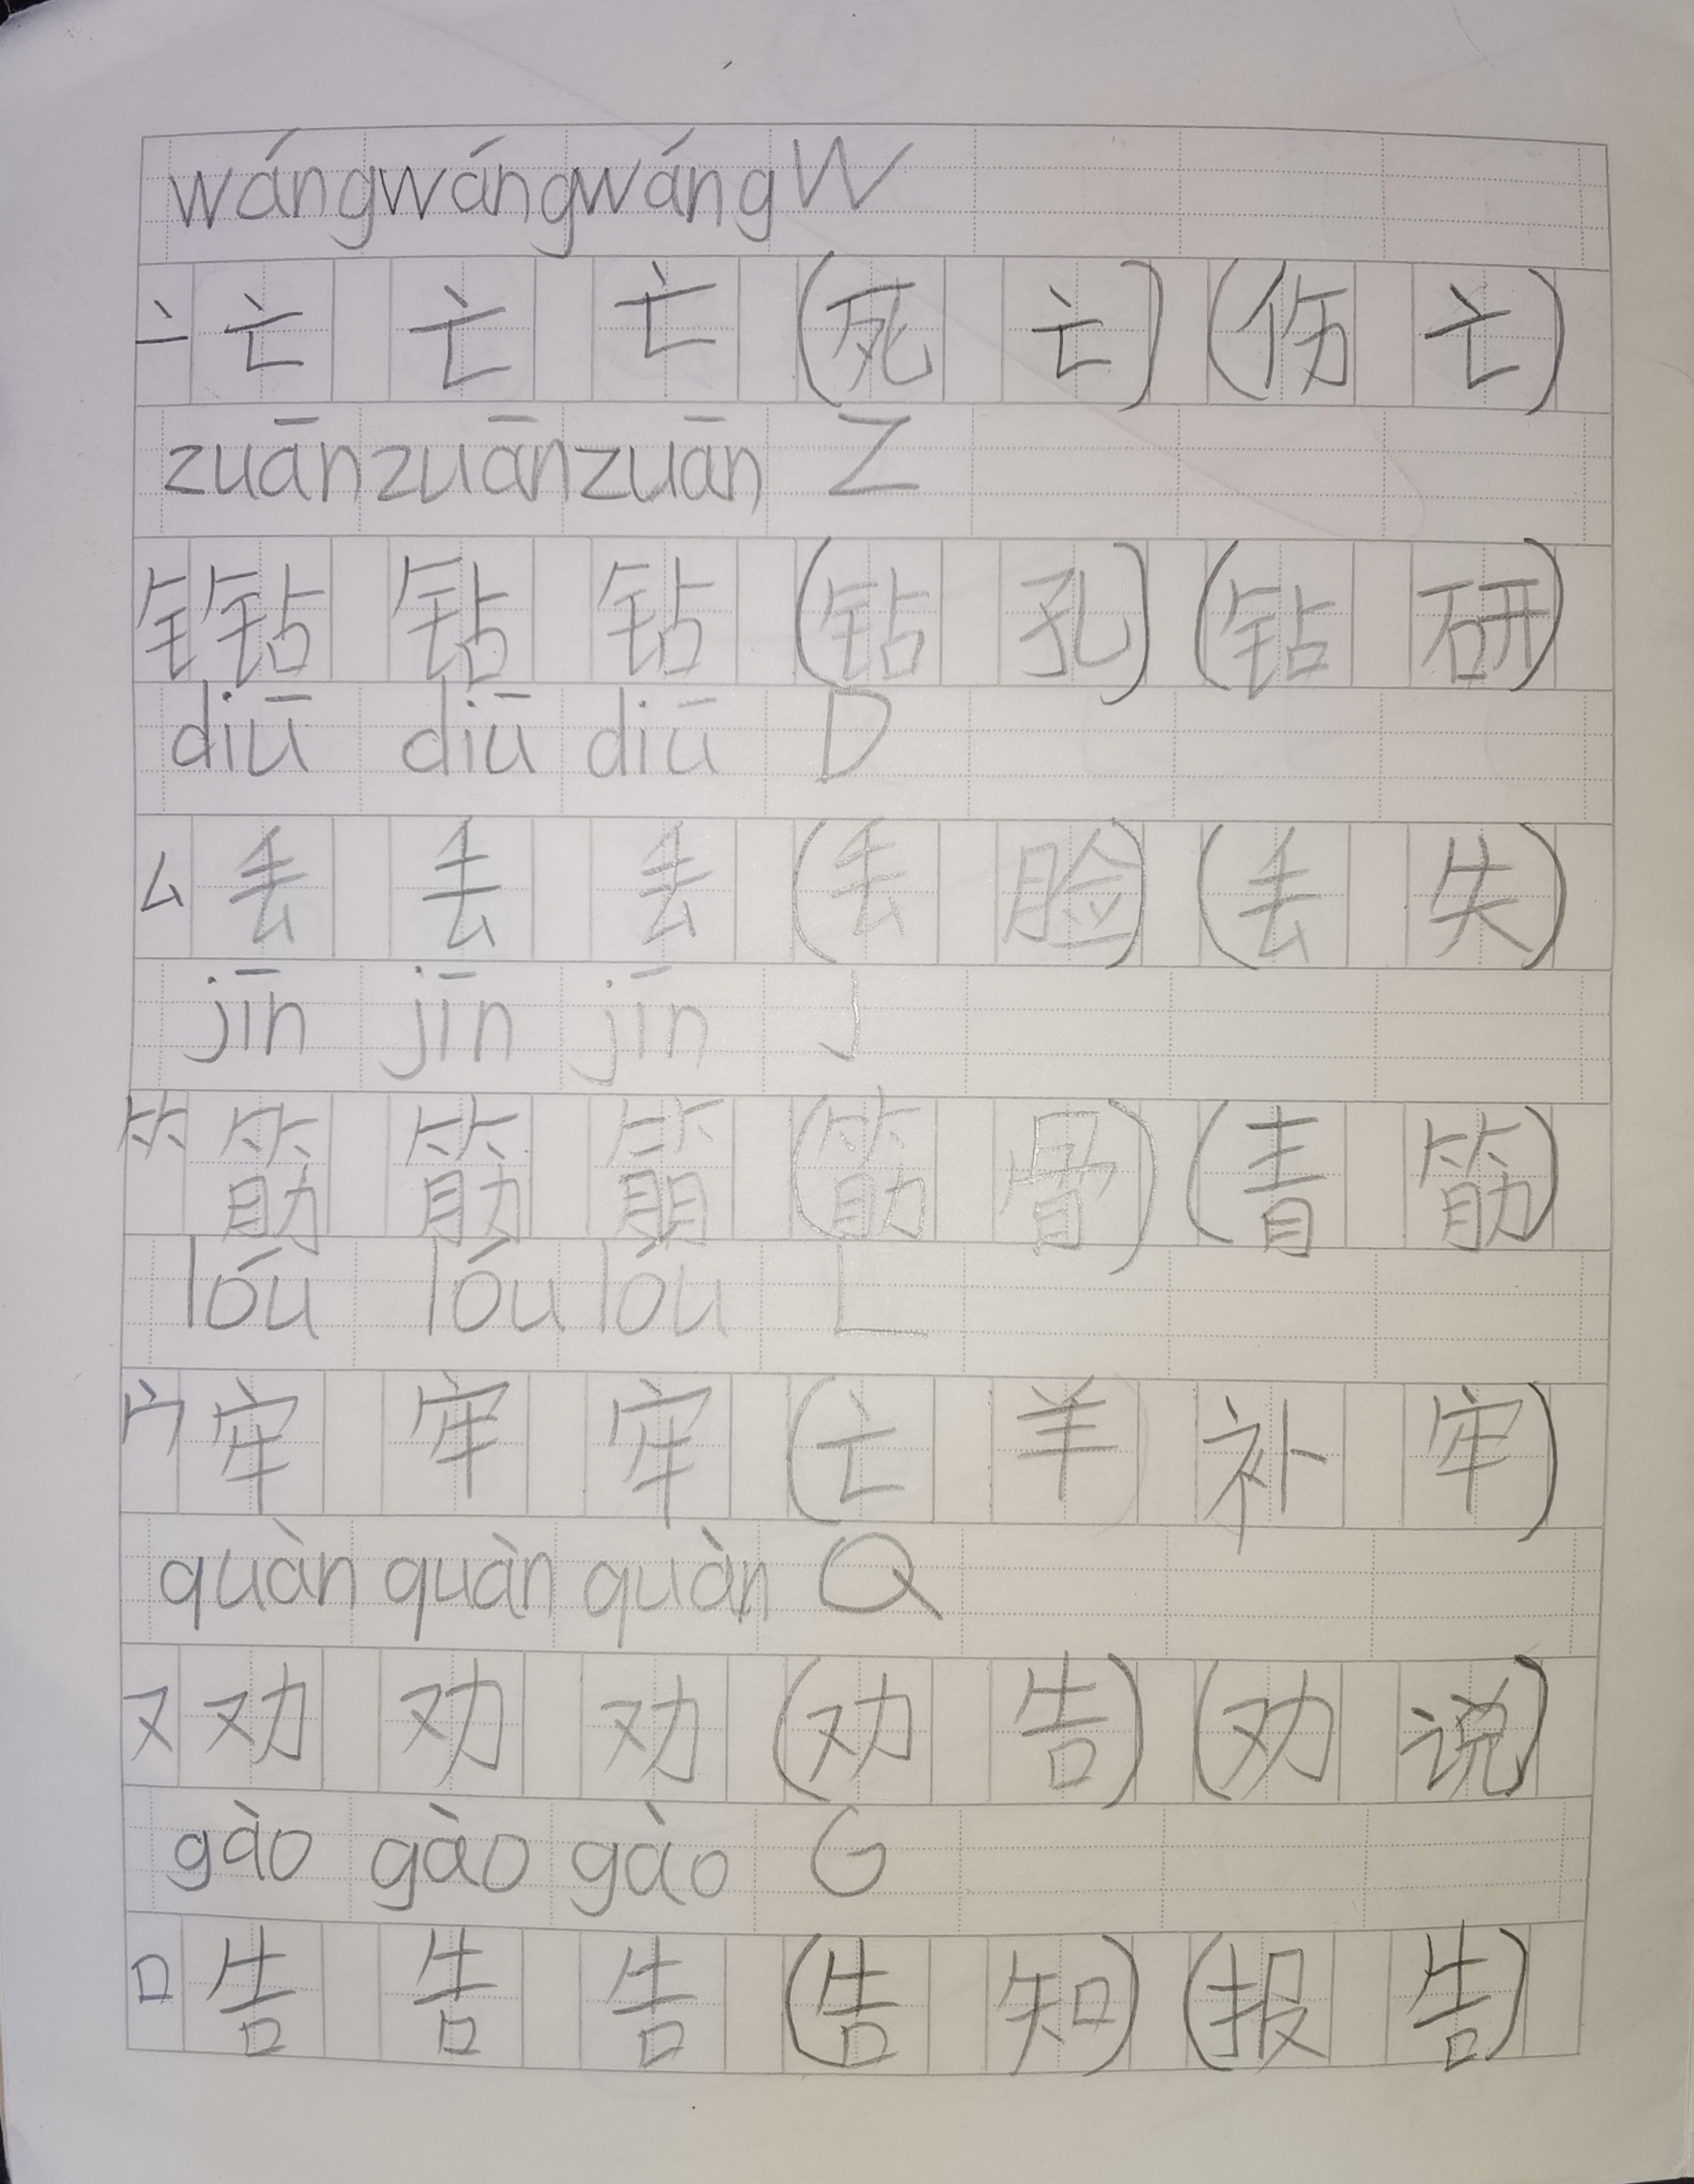 wángwángwáng W
亠 亡 亡 亡 (死 亡) (伤 亡)
zuānzuānzuān Z
钅 钻 钻 钻 (钻 孔) (钻 研)
diū diū diū D
厶 丢 丢 丢 (丢 脸) (丢 失)
jīn jīn jīn J
⺮ 筋 筋 筋 (筋 骨) (青 筋)
lóu lóu lóu L
宀 牢 牢 牢 (亡 羊 补 牢)
quàn quàn quàn Q
又 劝 劝 劝 (劝 告) (劝 说)
gào gào gào G
口 告 告 告 (告 知) (报 告)